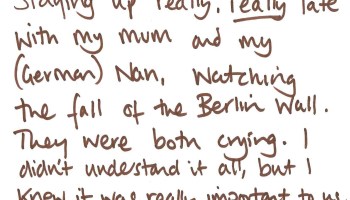 Staying up really, really late
with my mum and my
(German) Nan, watching
the fall of the Berlin Wall.
They were both crying. I
didn't understand it all, but I
knew it was really important to us